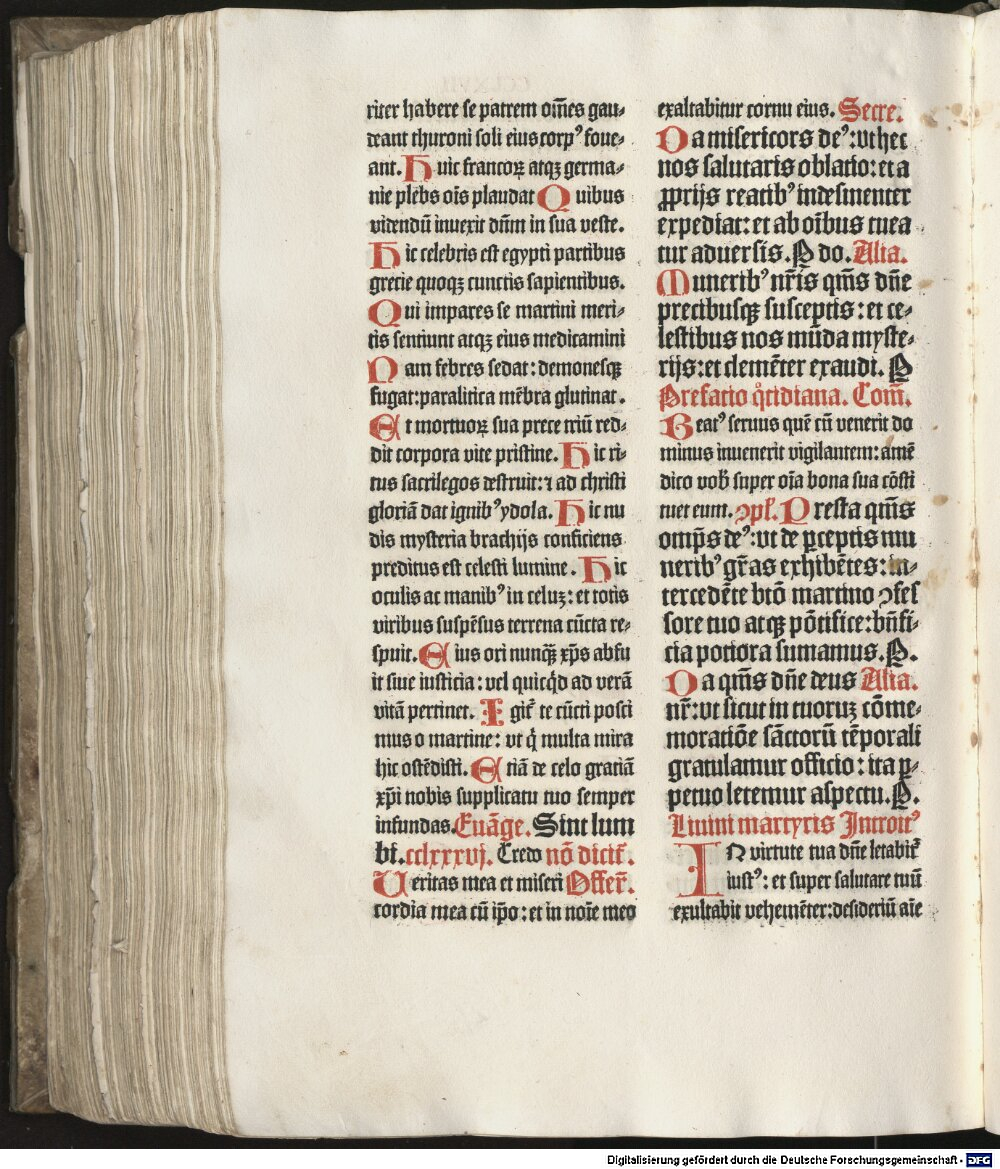 riter habere se patrem om̄es gau⸗
deant thuroni soli eius corpꝰ foue⸗
ant. Huic francoꝝ atqꝫ germa⸗
nie plebs oīs plaudat Quibus
videndū inuexit dn̄m in sua veste.
Hic celebris est egypti partibus
grecie quoqꝫ cunctis sapientibus.
Qui impares se martini meri⸗
tis sentiunt atqꝫ eius medicamini
Nam febres sedat: demonesqꝫ
fugat: paralitica mēbra glutinat.
Et mortuoꝝ sua prece triū red⸗
dit corpora vite pristine. Hic ri⸗
tus sacrilegos destruit: ⁊ ad christi
gloriā dat ignibꝰ ydola. Hic nu
dis mysteria brachijs conficiens
preditus est celesti lumine. Hic
oculis ac manibꝰ in celuꝫ: et totis
viribus suspēsus terrena cūcta re⸗
spuit. Eius ori nunqꝫ̄ xp̄s abfu
it siue iusticia: vel quicq̇d ad verā
vitā pertinet. Igit̄ te cūcti posci
mus o martine: vt q̇ multa mira
hic ostēdisti. Etiā de celo gratiā
xp̄i nobis supplicatu tuo semper
infundas. Euāge. Sint lum
bi. cclxxxvj. Credo nō dicit̄.
Ueritas mea et miseri Offer̄.
cordia mea cū ip̄o: et in noīe meo
exaltabitur cornu eius. Secre.
Da misericors deꝰ: vt hec
nos salutaris oblatio: et a
ꝓprijs reatibꝰ indesinenter
expediat: et ab oībus tuea
tur aduersis. P do. Alia.
Muneribꝰ nr̄is qm̄s dn̄e
precibusqꝫ susceptis: et ce⸗
lestibus nos mūda myste⸗
rijs: et clemēter exaudi. P
Prefatio q̊tidiana. Com̄.
Beatꝰ seruus quē cū venerit do
minus inuenerit vigilantem: amē
dico vob̄ super oīa bona sua cōsti
tuet eum. ꝯpl̄. Presta qm̄s
omp̄s deꝰ: vt de ꝑceptis mu
neribꝰ gr̄as exhibētes: in⸗
tercedēte btō martino ꝯfes
sore tuo atqꝫ pōtifice: bn̄fi⸗
cia potiora sumamus. P.
Da qm̄s dn̄e deus Alia.
nr̄: vt sicut in tuoruꝫ cōme⸗
moratiōe sāctorū tēporali
gratulamur officio: ita ꝑ⸗
petuo letemur aspectu. P.
Liuini martyris Introitꝰ
IN virtute tua dn̄e letabit̄
iustꝰ: et super salutare tuū
exultabit vehemēter: desideriū aīe
Digitalisierung gefördert durch die Deutsche Forschungsgemeinschaft - DFG